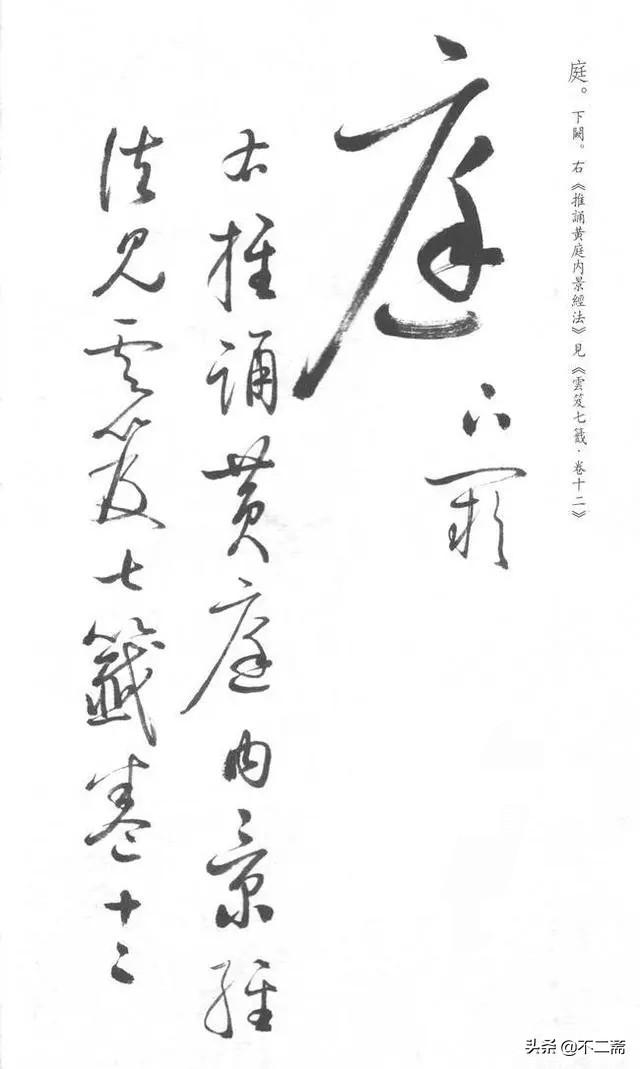 庭。下闕。右《推誦黄庭内景經法》見《雲笈七籤·卷十二》
庭
下闕
右推誦黄庭内景經
法見雲笈七籤卷十二
头条 @不二斋